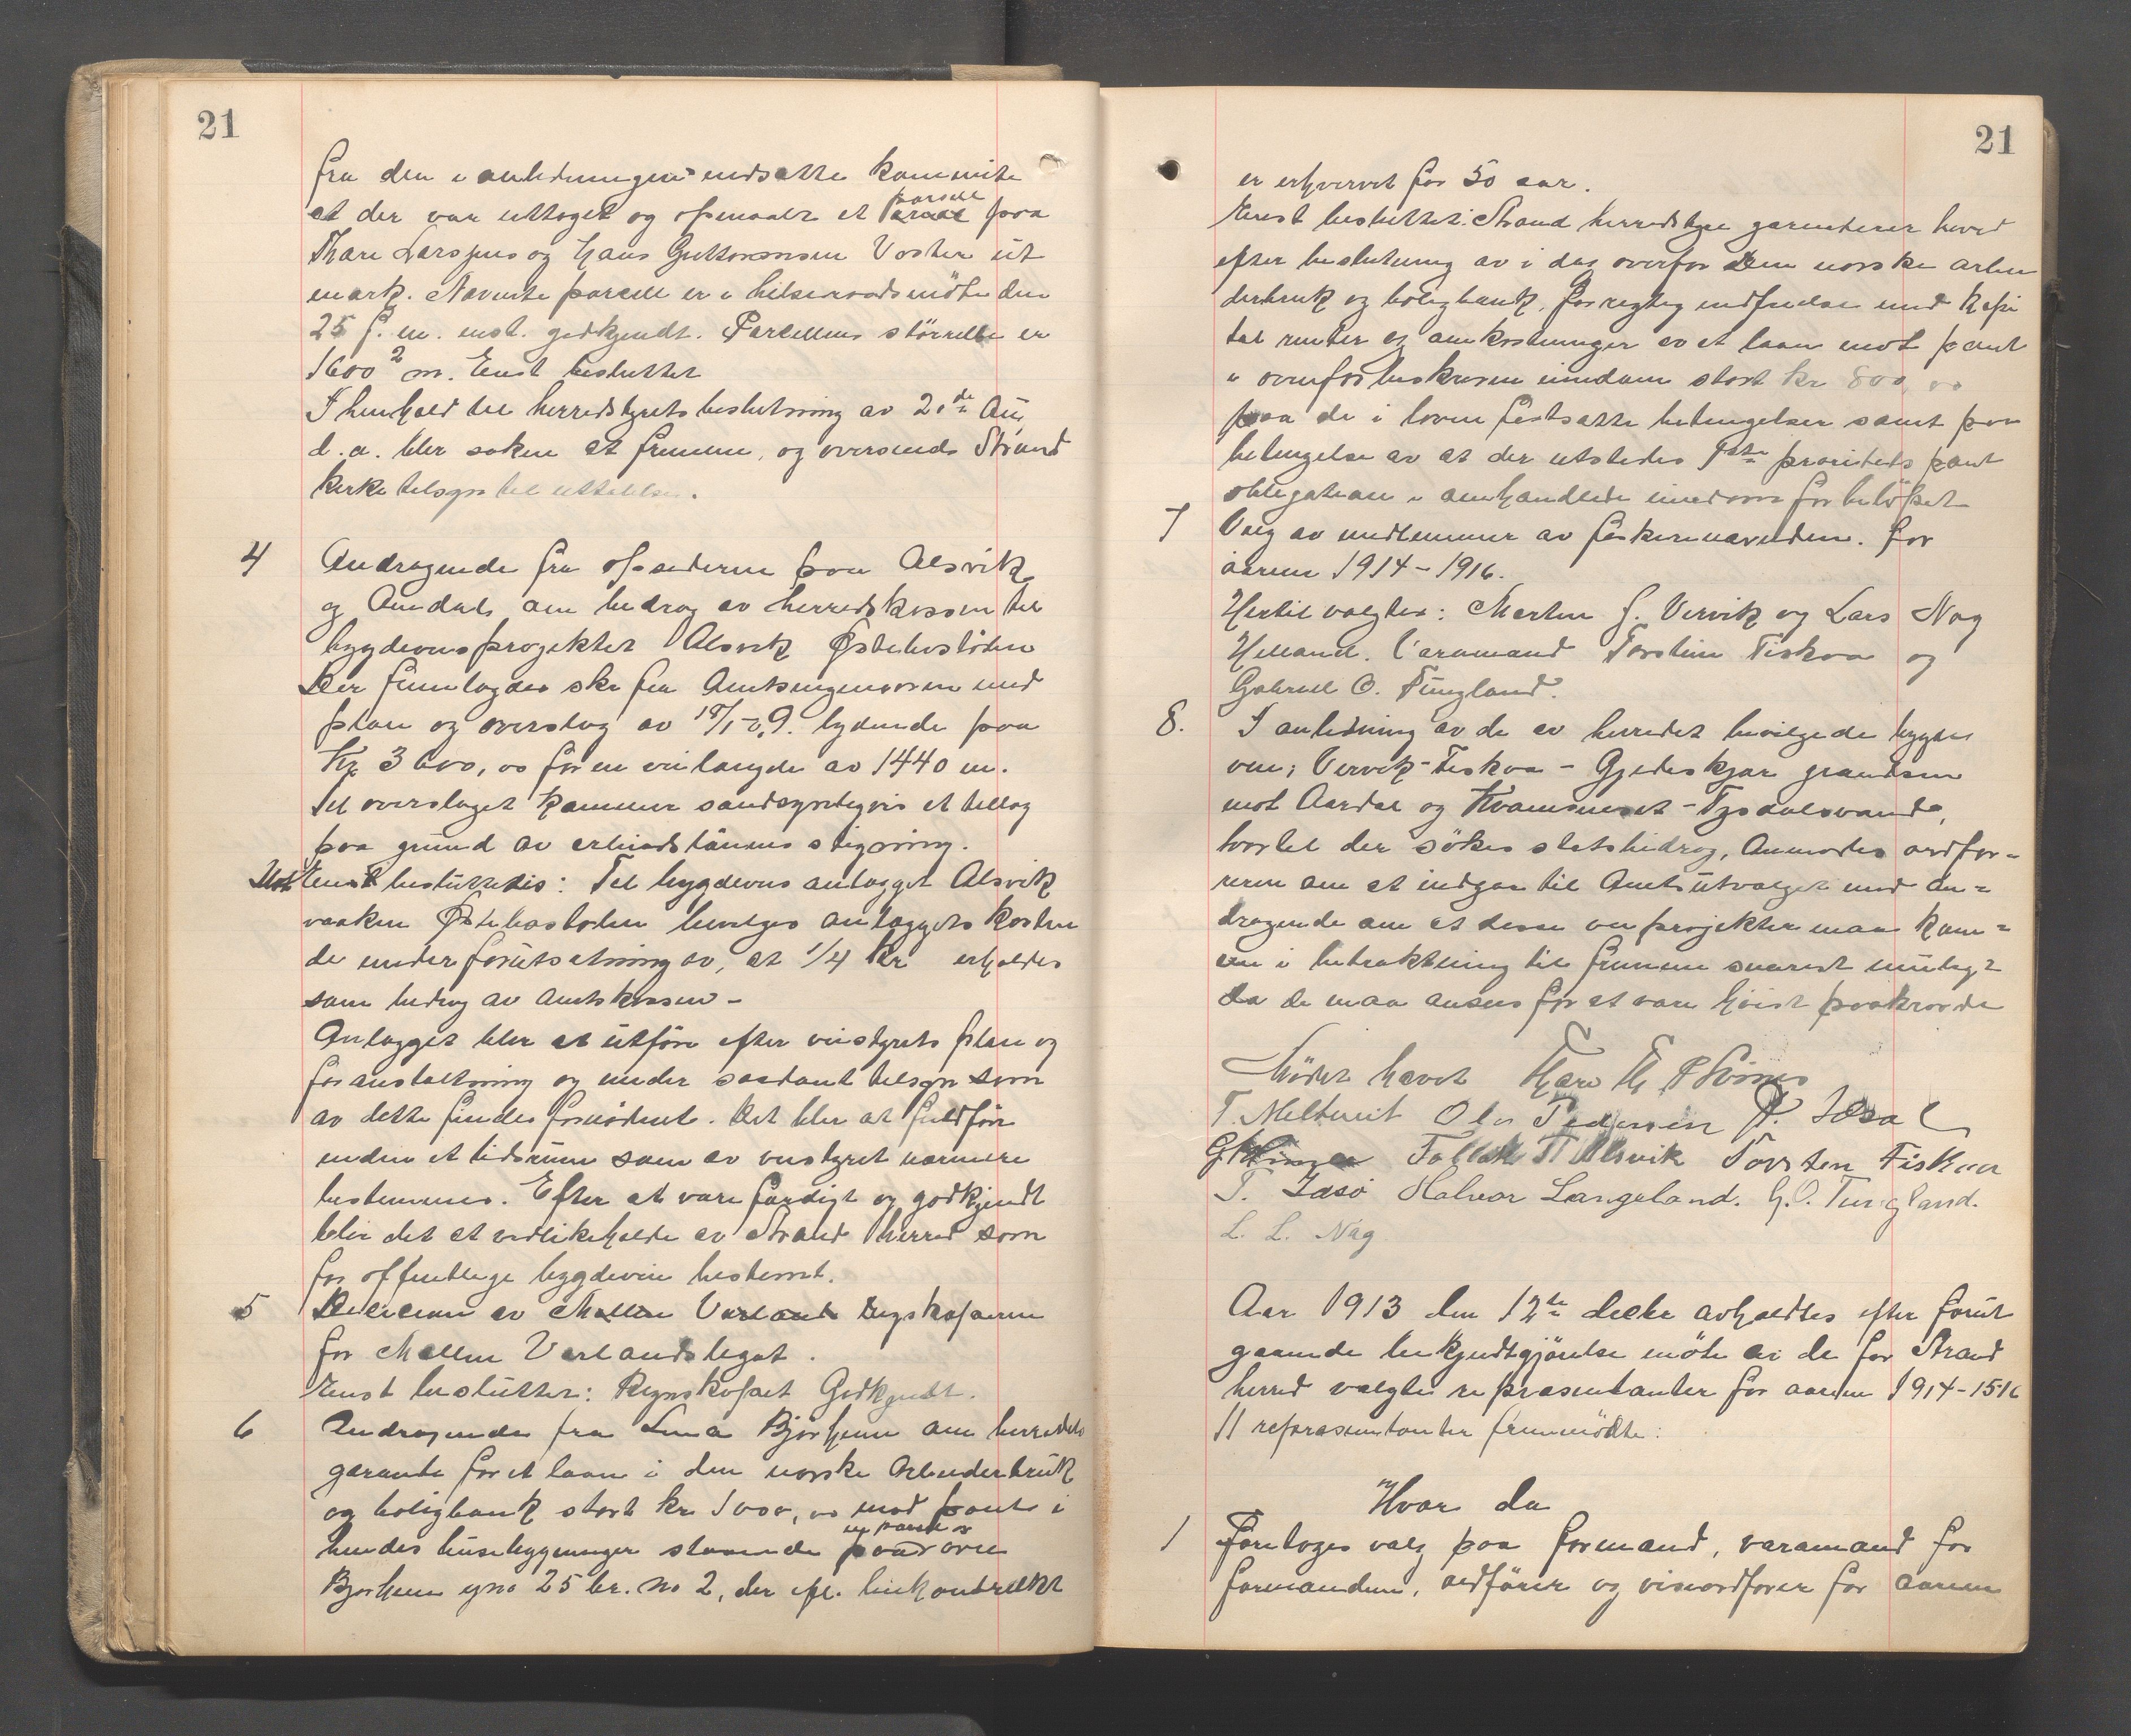 21
fra den i anledningen nedsatte kommite
at der var uttaget og opmaalt et parsell paa
Thore Larsens og Hans Guttormsen Voster ut
mark. Nævnte parcell er i helseraadsmöte den
25 f. m. enst. godkjendt. Parcellens störrelse er
1600 m². Enst besluttet
I henhold til herredstyrets beslutning av 21de Aug
d.a. blir saken at fremme, og oversende Strand
kirketilsyn til uttalelse.
4 Andragende fra opsidderne paa Alsvik
og Amdal om bidrag av herredskassen til
bygdeveisprojektet Alsvik Østebøstöden
Der fremlagdes skr fra Amtsingeniøren med
plan og overslag av 18/1-09. lydende paa
Kr 3600,00 for en veilængde av 1440 m.
Til overslaget kommer sandsynligvis et tillæg
paa grund av arbeidslönnens stigning.
Enst besluttedes: Til bygdeveis anlægget Alsvik
vaaken Østebøstoden bevilges anlæggets kosten
de under forutsætning av, at 1/4 kr erholdes
som bidrag av Amtskassen -
Anlægget blir at utföre efter veistyrets plan og
foranstaltning og under saadant tilsyn som
av dette findes fornödent. Det blir at fuldföre
inden et tidsrum som av veistyret nærmere
bestemmes. Efter at være færdigt og godkjendt
blir det at vedlikeholde av Strand herred som
for offentlige bygdeveie bestemt.
5 Decision av Mallin Verland Regnskaperne
for Mallin Verlands legat.
Enst besluttet: Regnskapet Godkjendt.
6 Andragende fra Lina Bjørheim om herredets
garanti for et laan i den norske Arbeiderbruk
og boligbank stort kr 1000,00 mod pant i
hendes husebygninger staaende paa en parsel av övre
Bjørheim gno 25 br. no 2, der ifl. leiekontrakt
21
er erhvervet for 50 aar.
Enst besluttet: Strand herredstyre garanterer herved
efter beslutning av i dag overfor Den norske arbei
derbruk og boligbank, for rigtig indfrielse med kapi
tal renter og omkostninger av et laan mot pant
i ovenforbeskrevne eiendom stort kr 800,00
paa de i loven fastsatte betingelser samt paa
betingelse av at der utstedes 1ste prioritets pant
obligation i omhandlede eiendom for belöpet
7 Valg av medlemmer av fiskerinævnden. for
aarene 1914-1916.
Hertil valgtes: Morten J. Vervik og Lars Nag
Helland. Varamænd Torsten Fiskaa og
Gabriel O. Tungland.
8. I anledning av de av herredet bevilgede bygde
veie; Vervik-Fiskaa - Gjedeskjær grændsen
mot Aardal og Kvamsneset - Tysdalsvandet,
hvortil der sökes statsbidrag, Anmodes ordfør=
reren om at indgaa til Amtsutvalget med an=
dragende om at disse veiprojekter maa kom=
me i betraktning til fremme snarest mulig=
da de maa ansees for at være höist paakrævde
Mödet hævet Thore Th P Sörnes
T. Meltveit Ole Pedersen P. Idsal
Tollak T Alsvik Torsten Fiskaa
T. Idsö Halvor Langeland. G.O. Tungland.
L. L. Nag
Aar 1913 den 12te decbr avholdtes efter forut
gaaende bekjendtgjörelse möte av de for Strand
herred valgte repræsentanter for aarene 1914-15-16
11 repræsentanter fremmödte:
Hvor da
1 Foretoges valg paa formand, varamand for
formanden, ordförer og viseordförer for aarene